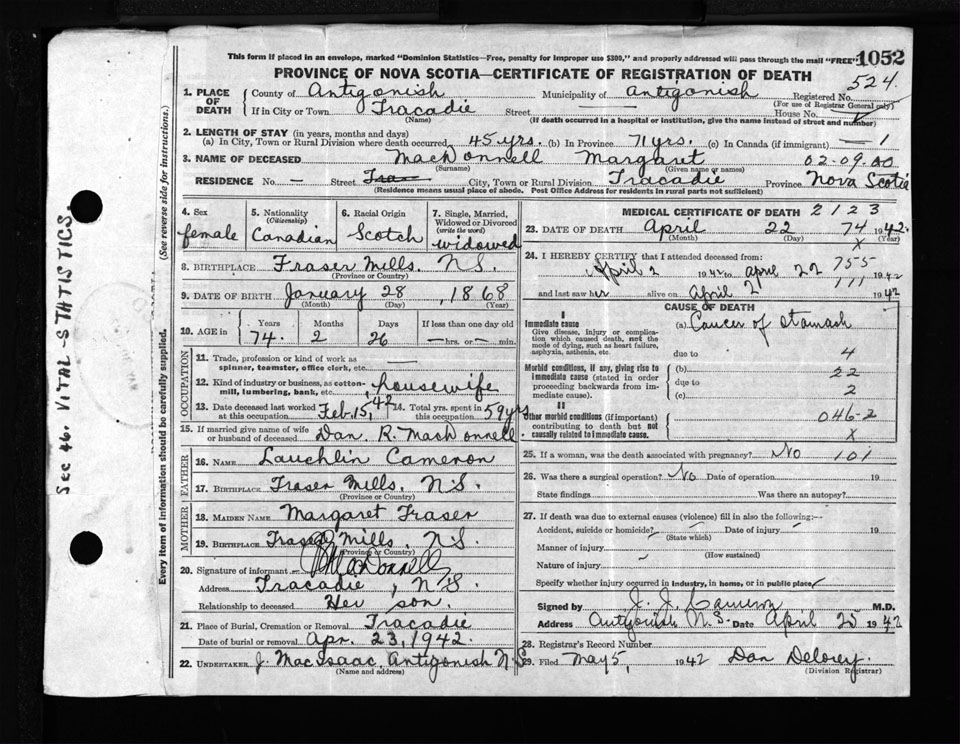 This form if placed in an envelope, marked "Dominion Statistics—Free, penalty for improper use $300," and properly addressed will pass through the mail "FREE"
1052
PROVINCE OF NOVA SCOTIA—CERTIFICATE OF REGISTRATION OF DEATH
524
1. PLACE OF DEATH County of Antigonish Municipality of Antigonish Registered No.
(For use of Registrar General only)
If in City or Town Tracadie Street — House No.
(Name) (If death occurred in a hospital or institution, give the name instead of street and number)
2. LENGTH OF STAY (in years, months and days)
(a) In City, Town or Rural Division where death occurred 45 yrs. (b) In Province 71 yrs. (c) In Canada (if immigrant) — 1
3. NAME OF DECEASED MacDonnell Margaret 02-09.00
(Surname) (Given name or names)
RESIDENCE No. — Street Tra City, Town or Rural Division Tracadie Province Nova Scotia
(Residence means usual place of abode. Post Office Address for residents in rural parts not sufficient)
4. Sex female
5. Nationality (Citizenship) Canadian
6. Racial Origin Scotch
7. Single, Married, Widowed or Divorced (write the word) widowed
8. BIRTHPLACE Fraser Mills. N.S.
(Province or Country)
9. DATE OF BIRTH January 28, 1868
(Month) (Day) (Year)
10. AGE in Years Months Days If less than one day old
74. 2 26 — hrs. or — min.
OCCUPATION
11. Trade, profession or kind of work as —
spinner, teamster, office clerk, etc.
12. Kind of industry or business, as cotton-mill, lumbering, bank, etc. housewife
13. Date deceased last worked at this occupation Feb. 15, 42 14. Total yrs. spent in this occupation 59 yrs
15. If married give name of wife or husband of deceased Dan. R. MacDonnell
FATHER
16. NAME Lauchlin Cameron
17. BIRTHPLACE Fraser Mills. N.S.
(Province or Country)
MOTHER
18. MAIDEN NAME Margaret Fraser
19. BIRTHPLACE Fraser Mills N.S.
(Province or Country)
20. Signature of informant MacDonnell
Address Tracadie, N.S.
Relationship to deceased Her son.
21. Place of Burial, Cremation or Removal Tracadie
Date of burial or removal Apr. 23, 1942.
22. UNDERTAKER J. MacIsaac, Antigonish N.S
(Name and address)
MEDICAL CERTIFICATE OF DEATH 2123
23. DATE OF DEATH April 22 74 1942.
(Month) (Day) X (Year)
24. I HEREBY CERTIFY that I attended deceased from: 755
April 2 1942 to April 22 1942
111
and last saw her alive on April 21 1942
CAUSE OF DEATH
I
Immediate cause (a) Cancer of stomach
Give disease, injury or complication which caused death, not the mode of dying, such as heart failure, asphyxia, asthenia, etc.
due to 4
Morbid conditions, if any, giving rise to immediate cause (stated in order proceeding backwards from immediate cause).
(b) 22
due to
(c) 2
II
Other morbid conditions (if important) contributing to death but not causally related to immediate cause.
046-2
X
25. If a woman, was the death associated with pregnancy? No 101
26. Was there a surgical operation? No Date of operation 19
State findings Was there an autopsy?
27. If death was due to external causes (violence) fill in also the following:—
Accident, suicide or homicide? Date of injury 19
(State which)
Manner of injury
(How sustained)
Nature of injury
Specify whether injury occurred in industry, in home, or in public place
Signed by J. J. Cameron M.D.
Address Antigonish N.S. Date April 25 1942
28. Registrar's Record Number
29. Filed May 5, 1942 Dan Delorey.
(Division Registrar)
Sec 46. VITAL STATISTICS.
Every item of information should be carefully supplied.
(See reverse side for instructions.)